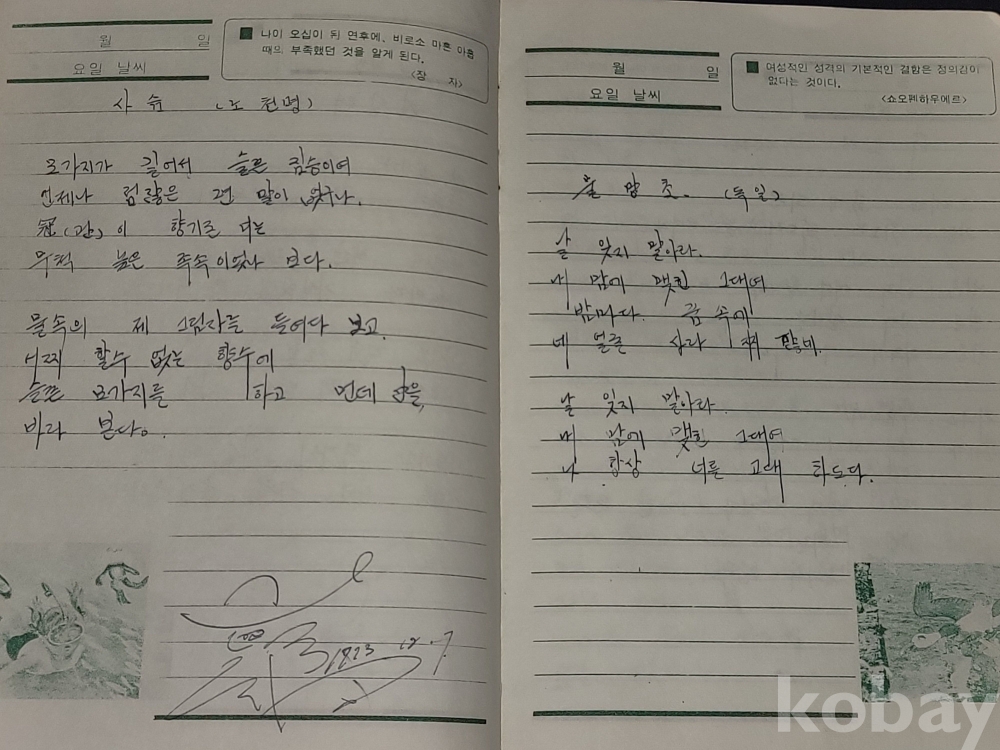 월 일
요일 날씨
나이 오십이 된 연후에, 비로소 마흔 아홉
때의 부족했던 것을 알게 된다.
<장 자>
사슴 (노천명)
모가지가 길어서 슬픈 짐승이여
언제나 점잖은 편 말이 없구나.
冠(관)이 향기로 너는
무척 높은 족속이었나 보다.
물속의 제 그림자를 들여다 보고
어찌 할수 없는 향수에
슬픈 모가지를 하고 먼데
바라 본다.
월 일
요일 날씨
여성적인 성격의 기본적인 결함은 정의감이
없다는 것이다.
<쇼오펜하우에르>
물망초. (독일)
날 잊지 말아라.
내 맘에 맺힌 그대여
밤마다. 꿈 속에
네 얼굴
날 잊지 말아라
내 맘에 맺힌 그대여
나 항상 너를 고대 하도다.
kobay